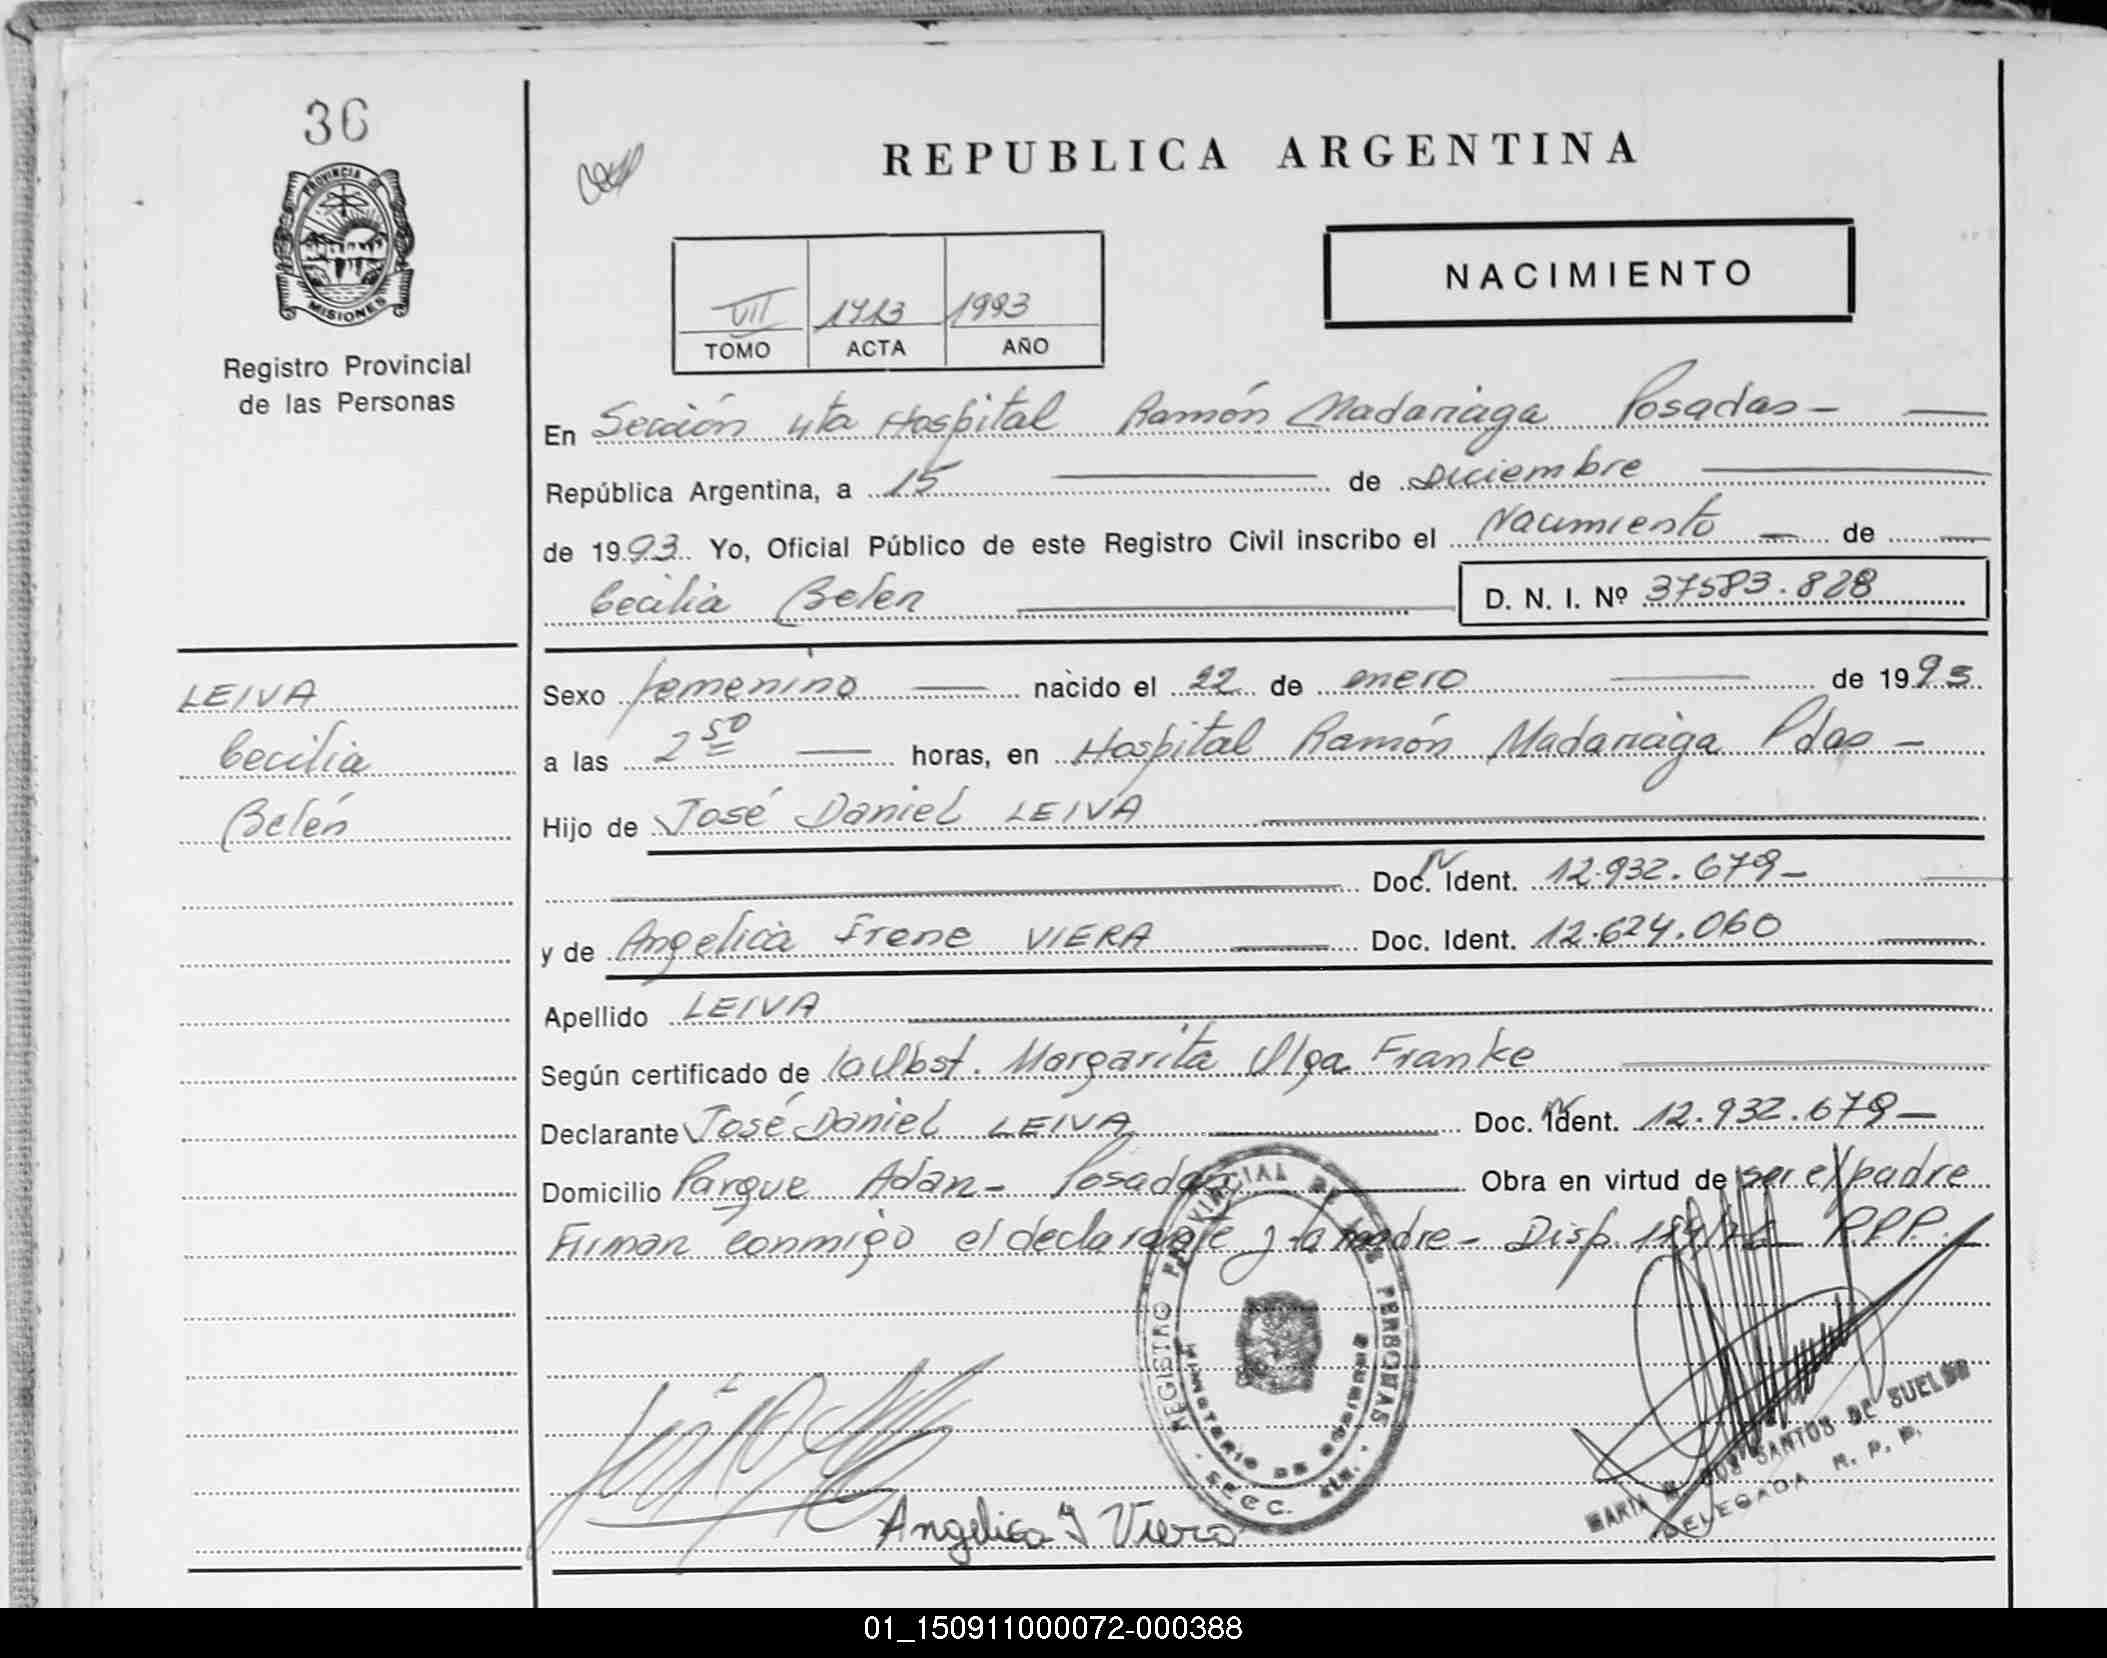 36
PROVINCIA DE
MISIONES
Registro Provincial
de las Personas
REPUBLICA ARGENTINA
NACIMIENTO
VII 1713 1993
TOMO ACTA AÑO
En Sección 4ta Hospital Ramón Madariaga Posadas -
República Argentina, a 15 de Diciembre
de 1993. Yo, Oficial Público de este Registro Civil inscribo el Nacimiento de
Cecilia Belen D. N. I. Nº 37583.828
LEIVA
Cecilia
Belén
Sexo femenino nacido el 22 de enero de 1993
a las 2 50 horas, en Hospital Ramón Madariaga Pdas -
Hijo de José Daniel LEIVA
Doc. N Ident. 12.932.679 -
y de Angelica Irene VIERA Doc. Ident. 12.624.060
Apellido LEIVA
Según certificado de la Obst. Margarita Olga Franke
Declarante José Daniel LEIVA Doc. N Ident. 12.932.679 -
Domicilio Parque Adan - Posadas Obra en virtud de ser el padre
Firman conmigo el declarante y la madre - Disp. RPP.
REGISTRO PROVINCIAL DE LAS PERSONAS
MINISTERIO DE GOBIERNO
SECC. 4ta.
Angelica I Viera
MARIA DOS SANTOS DE SUELDO
DELEGADA R. P. P.
01_150911000072-000388